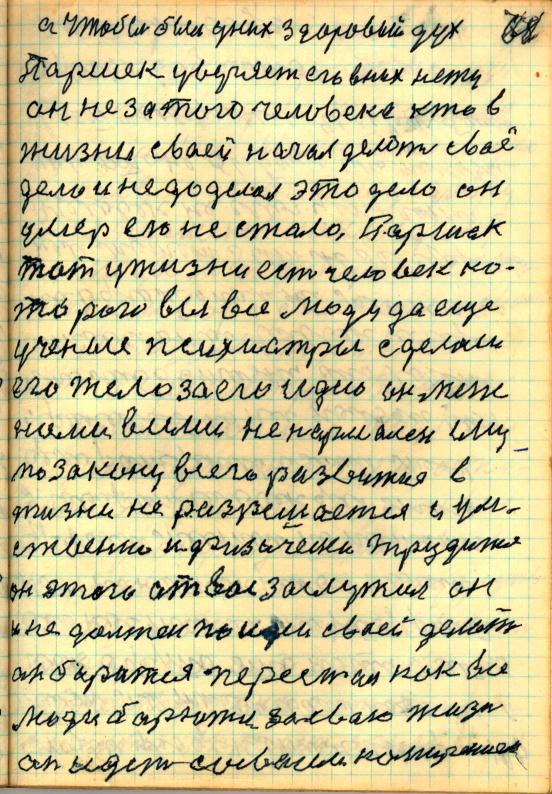 а чтобы был у них здоровый дух 68
Паршек уверяет его в них нету
он не за того человека кто в
жизни своей начал делать своё
дело и недоделал это дело он
умер его не стало, Паршек
тот у жизни есть человек ко-
торого вел все люди да еще
ученые психиатры сделали
его тело за его идею он меж
нами, всеми не нармален ему
по закону всего развития в
жизни не разрешается и ум-
ственно и физически трудится
он этого от вас заслужил он
и не должен по идеи своей делать
он баратся перестал как все
люди барютця за сваю жизн
он идет с своеми